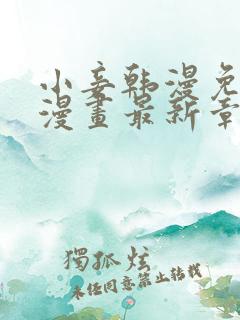 小妾韩漫免
漫畫最新章
獨孤炫
未经同意禁止转载